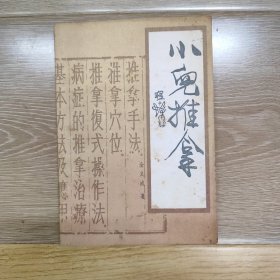 小儿推拿
推拿手法
推拿穴位
推拿復式操作法
病症的推拿治療
基本方法及應用